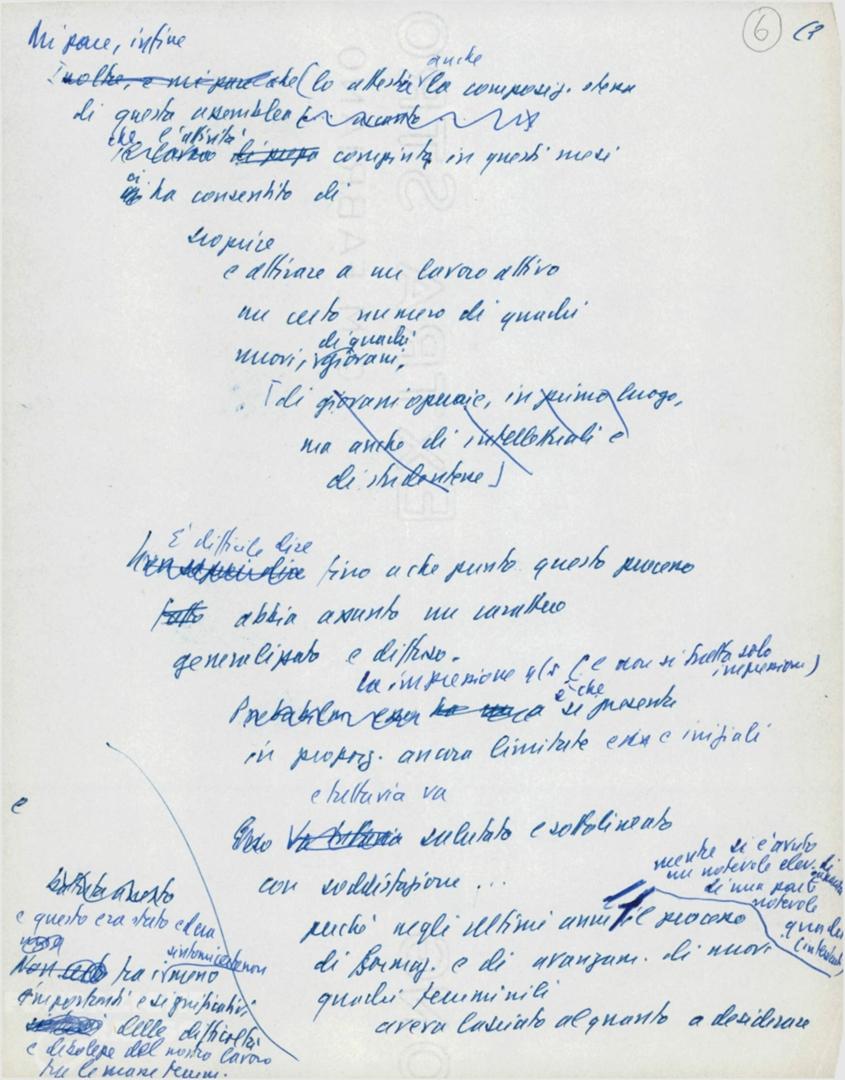 6
Mi pare, infine
Inoltre, e mi pare che (lo attesta anche la composiz. stessa
di questa assemblea
che l'attività
compiuta in questi mesi
ci ha consentito di
scoprire
e attirare a un lavoro attivo
un certo numero di quadri
di quadri
nuovi, giovani,
[di giovani operaie, in primo luogo,
ma anche di intellettuali e
di studentesse]
È difficile dire
fino a che punto questo processo
fatto abbia assunto un carattere
generalizzato e diffuso.
la impressione (e non si tratta solo
impressioni)
è che
si presenta
in proporz. ancora limitate e iniziali
e tuttavia va
Esso va tuttavia salutato e sottolineato
con soddisfazione ...
mentre si è avuto
un notevole elev. di
di una parte
notevole
quadri
perché negli ultimi anni il processo
di formaz. e di avanzam. di nuovi
quadri femminili
aveva lasciato alquanto a desiderare
e
e questo era stato
Non certo tra i meno
importanti e significativi
delle difficoltà
e debolezze del nostro lavoro
tra le masse femm.